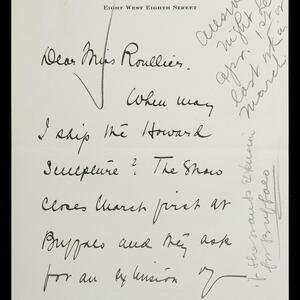 EIGHT WEST EIGHTH STREET
Dear Miss Roullier.
When may
I ship the Howard
Sculpture? The Show
closes March first at
Buffalo and they ask
for an extension of
might
Apr. 1st
last
March.
if she wants extension
for Buffalo